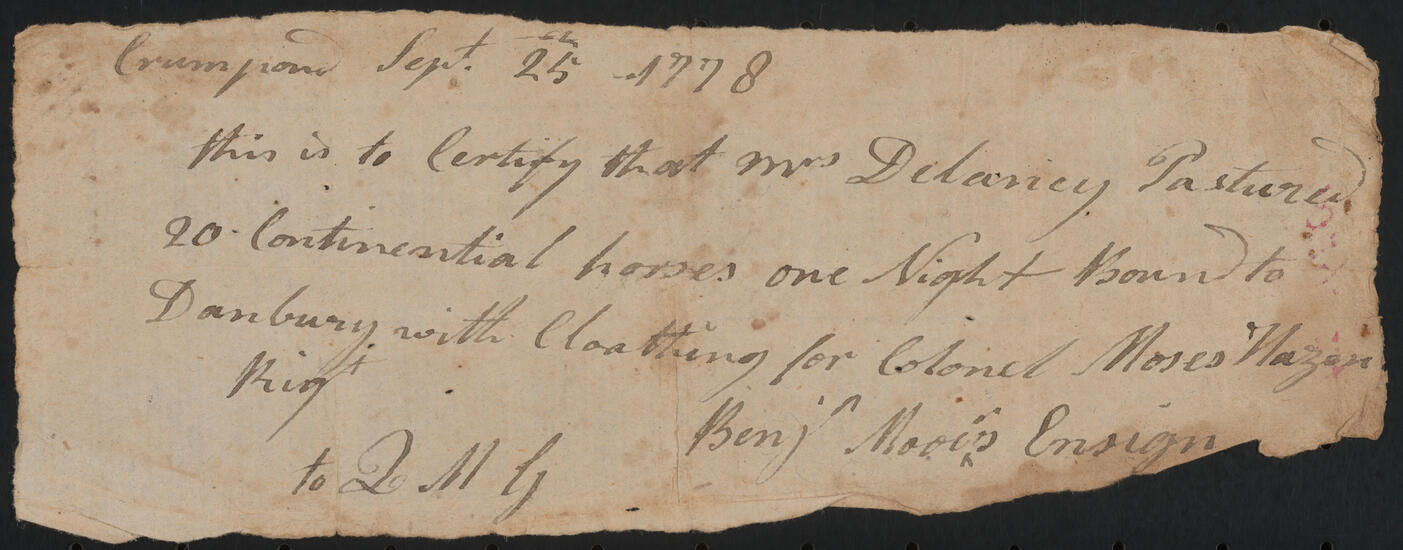 Crumpond Sept. 25th 1778
this is to Certify that Mrs Delancey Pastured
20 Continential horses one Night Bound to
Danbury with Cloathing for Colonel Moses Hazen
Rigt
Benjn Mooers Ensign
to Q M G